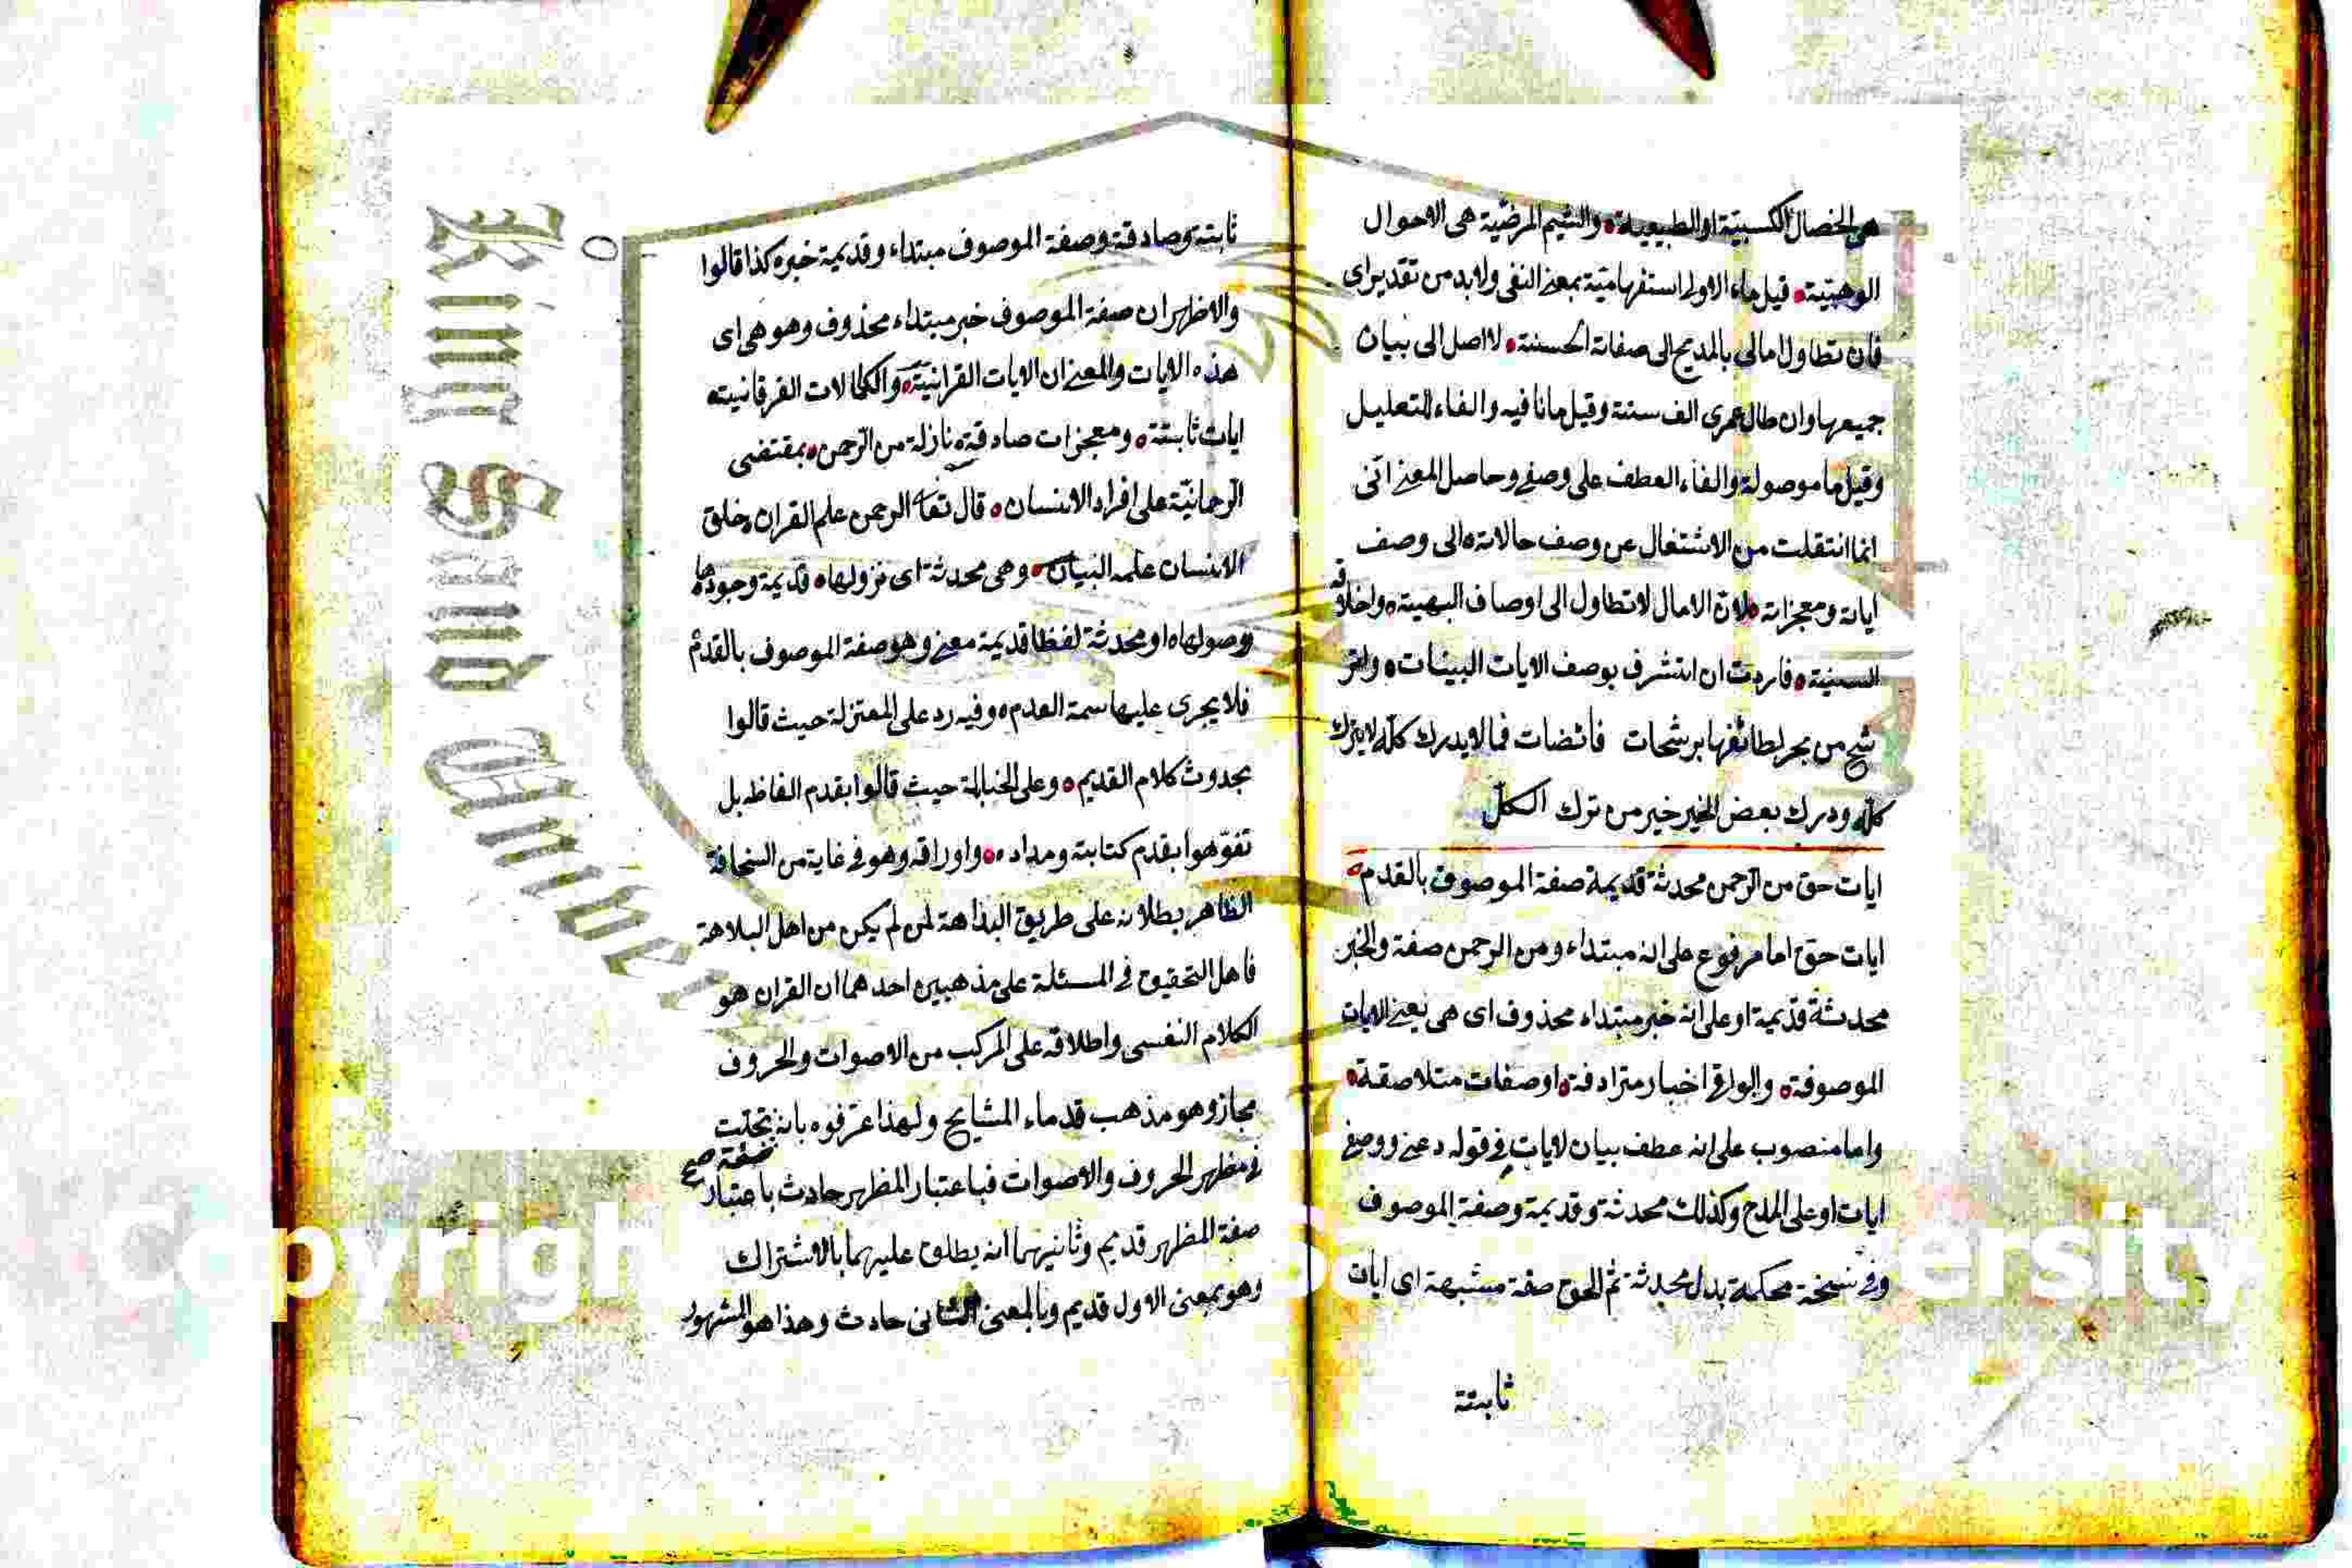 هى الخصال الكسبيّة او الطبيعية والشيم المرضيّة هى الاحوال
الوهبيّية قيل ماء الاولى استفهاميّة بمعنى النفى ولا بد من تقدير اى
فان تطاول امالى بالمديح الى صفاته الحسنة لا اصل الى بنيان
جميعها وان طال عمرى الف سنة وقيل ما نافيه والفاء للتعليل
وقيل ما موصولة والفاء للعطف على وصفى وحاصل المعنى انى
انما انتقلت من الاشتغال عن وصف حالاته الى وصف
اياته ومعجزاته لان الامال لا تطاول الى اوصاف البهية واخلاقه
السنية فاردت ان اتشرف بوصف الايات البينات واتر
شح من بحر لطائفها برشحات فائضات فما لا يدرك كله لا يترك
كله ودرك بعض الخير خير من ترك الكل
ايات حق من الرحمن محدثة قديمة صفة الموصوف بالقدم
ايات حق اما مرفوع على انه مبتداء ومن الرحمن صفة والخبر
محدثة قديمة او على انه خبر مبتداء محذوف اى هى يعنى الايات
الموصوفة والبواقى اخبار مترادفة او صفات متلاصقة
واما منصوب على انه عطف بيان لايات فى قوله دعنى ووصفى
ايات او على المدح وكذلك محدثة وقديمة وصفة الموصوف
وفى نسخة محكمة بدل محدثة ثم الحق صفة مشبهة اى ايات
ثابتة
ثابتة وصادقة وصفة الموصوف مبتداء وقديمة خبره كذا قالوا
والاظهر ان صفة الموصوف خبر مبتداء محذوف وهو هى اى
هذه الايات والمعنى ان الايات القرانيّة والكمالات الفرقانيته
ايات ثابتة ومعجزات صادقة نازلة من الرحمن بمقتضى
الرحمانيّة على افراد الانسان قال تعا الرحمن علم القران خلق
الانسان علمه البيان وهى محدثة اى نزولها قديمة وجودها
ووصولها او محدثة لفظا قديمة معنى وهو صفة الموصوف بالقدم
فلا يجرى عليها سمة العدم وفيه رد على المعتزلة حيث قالوا
بحدوث كلام القديم وعلى الحنابلة حيث قالوا بقدم الفاظه بل
تفوّهوا بقدم كتابته ومداده واوراقه وهو فى غاية من السخافة
الظاهر بطلانه على طريق البداهة لمن لم يكن من اهل البلاهة
فاهل التحقيق فى المسئلة على مذهبين احدهما ان القران هو
الكلام النفسى واطلاقه على المركب من الاصوات والحروف
مجاز وهو مذهب قدماء المشايخ ولهذا عرفوه بانه تجلت
صفة صح
فى مظهر الحروف والاصوات فباعتبار المظهر حادث باعتبار
صفة المظهر قديم وثانيهما انه يطلق عليهما بالاشتراك
وهو بمعنى الاول قديم وبالمعنى الثانى حادث وهذا هو المشهور
King Saud Univer
Copyrigh
ersity